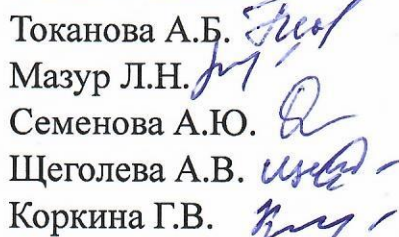 Токанова А.Б.
Мазур Л.Н.
Семенова А.Ю.
Щеголева А.В.
Коркина Г.В.